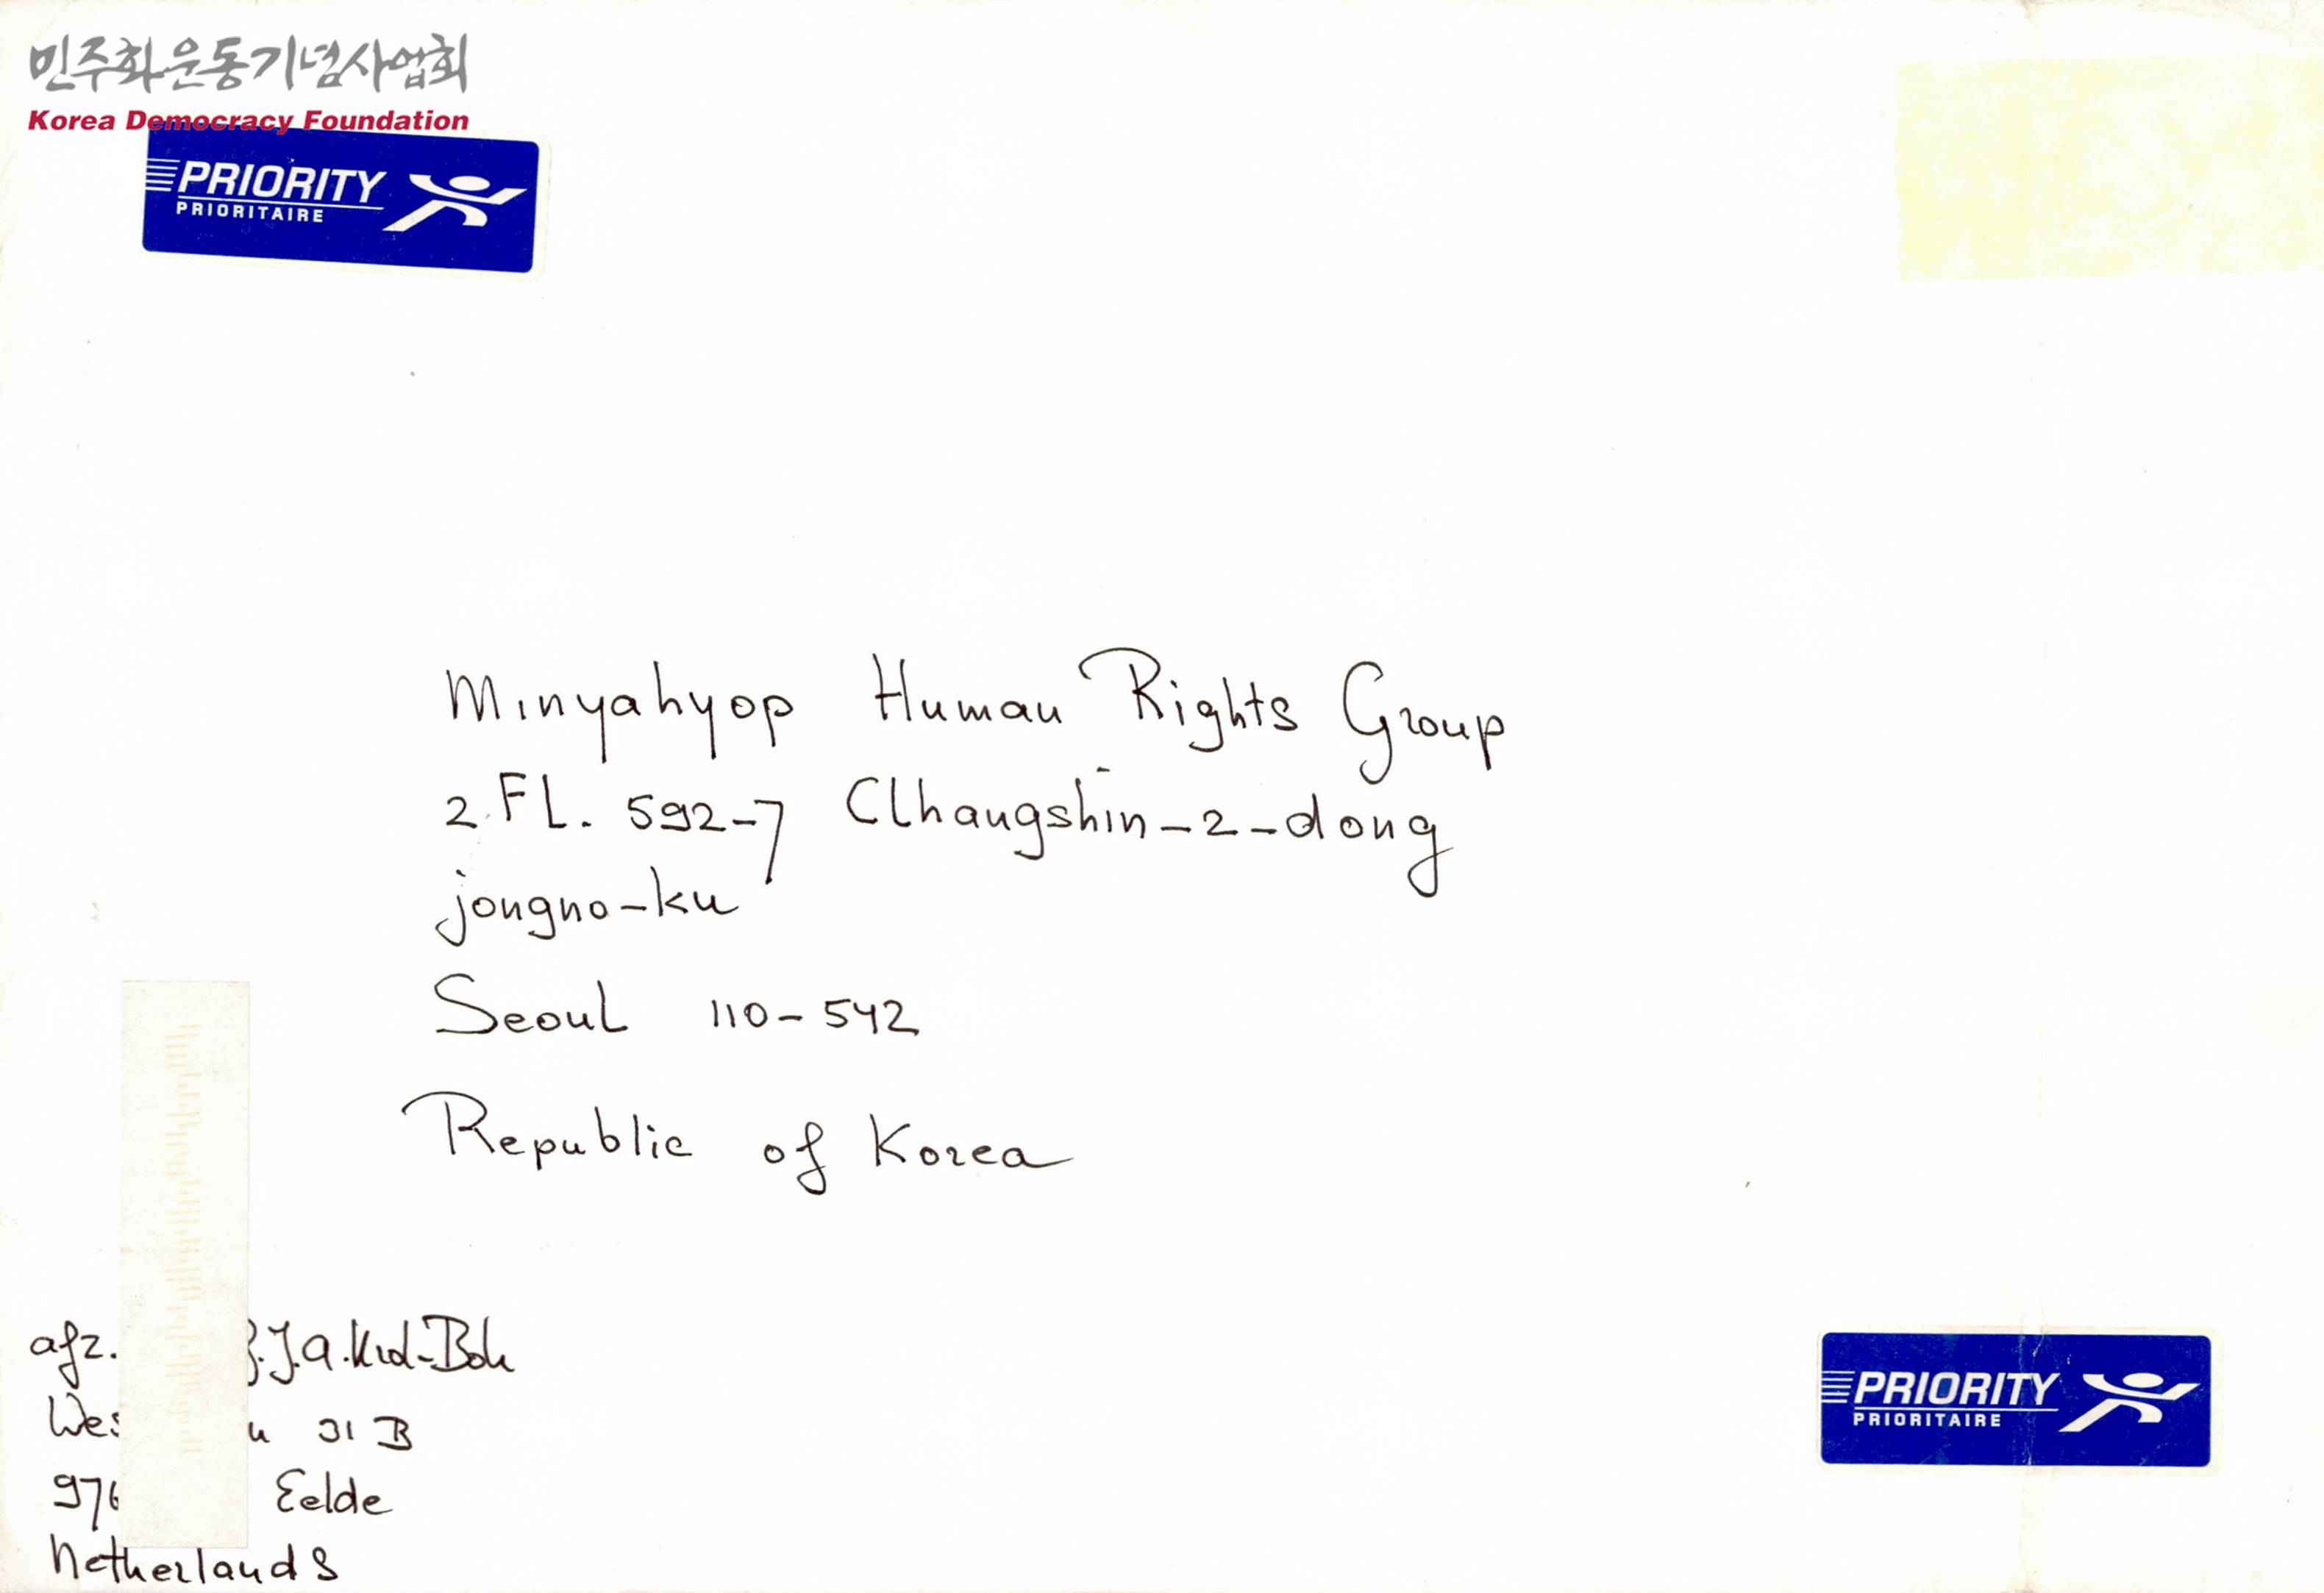 민주화운동기념사업회
Korea Democracy Foundation
PRIORITY
PRIORITAIRE
Minyahyop Human Rights Group
2 FL. 592-7 Clhangshin-2-dong
jongno-ku
Seoul 110-542
Republic of Korea
afz. J.A.
31 B
Eelde
Netherlands
PRIORITY
PRIORITAIRE